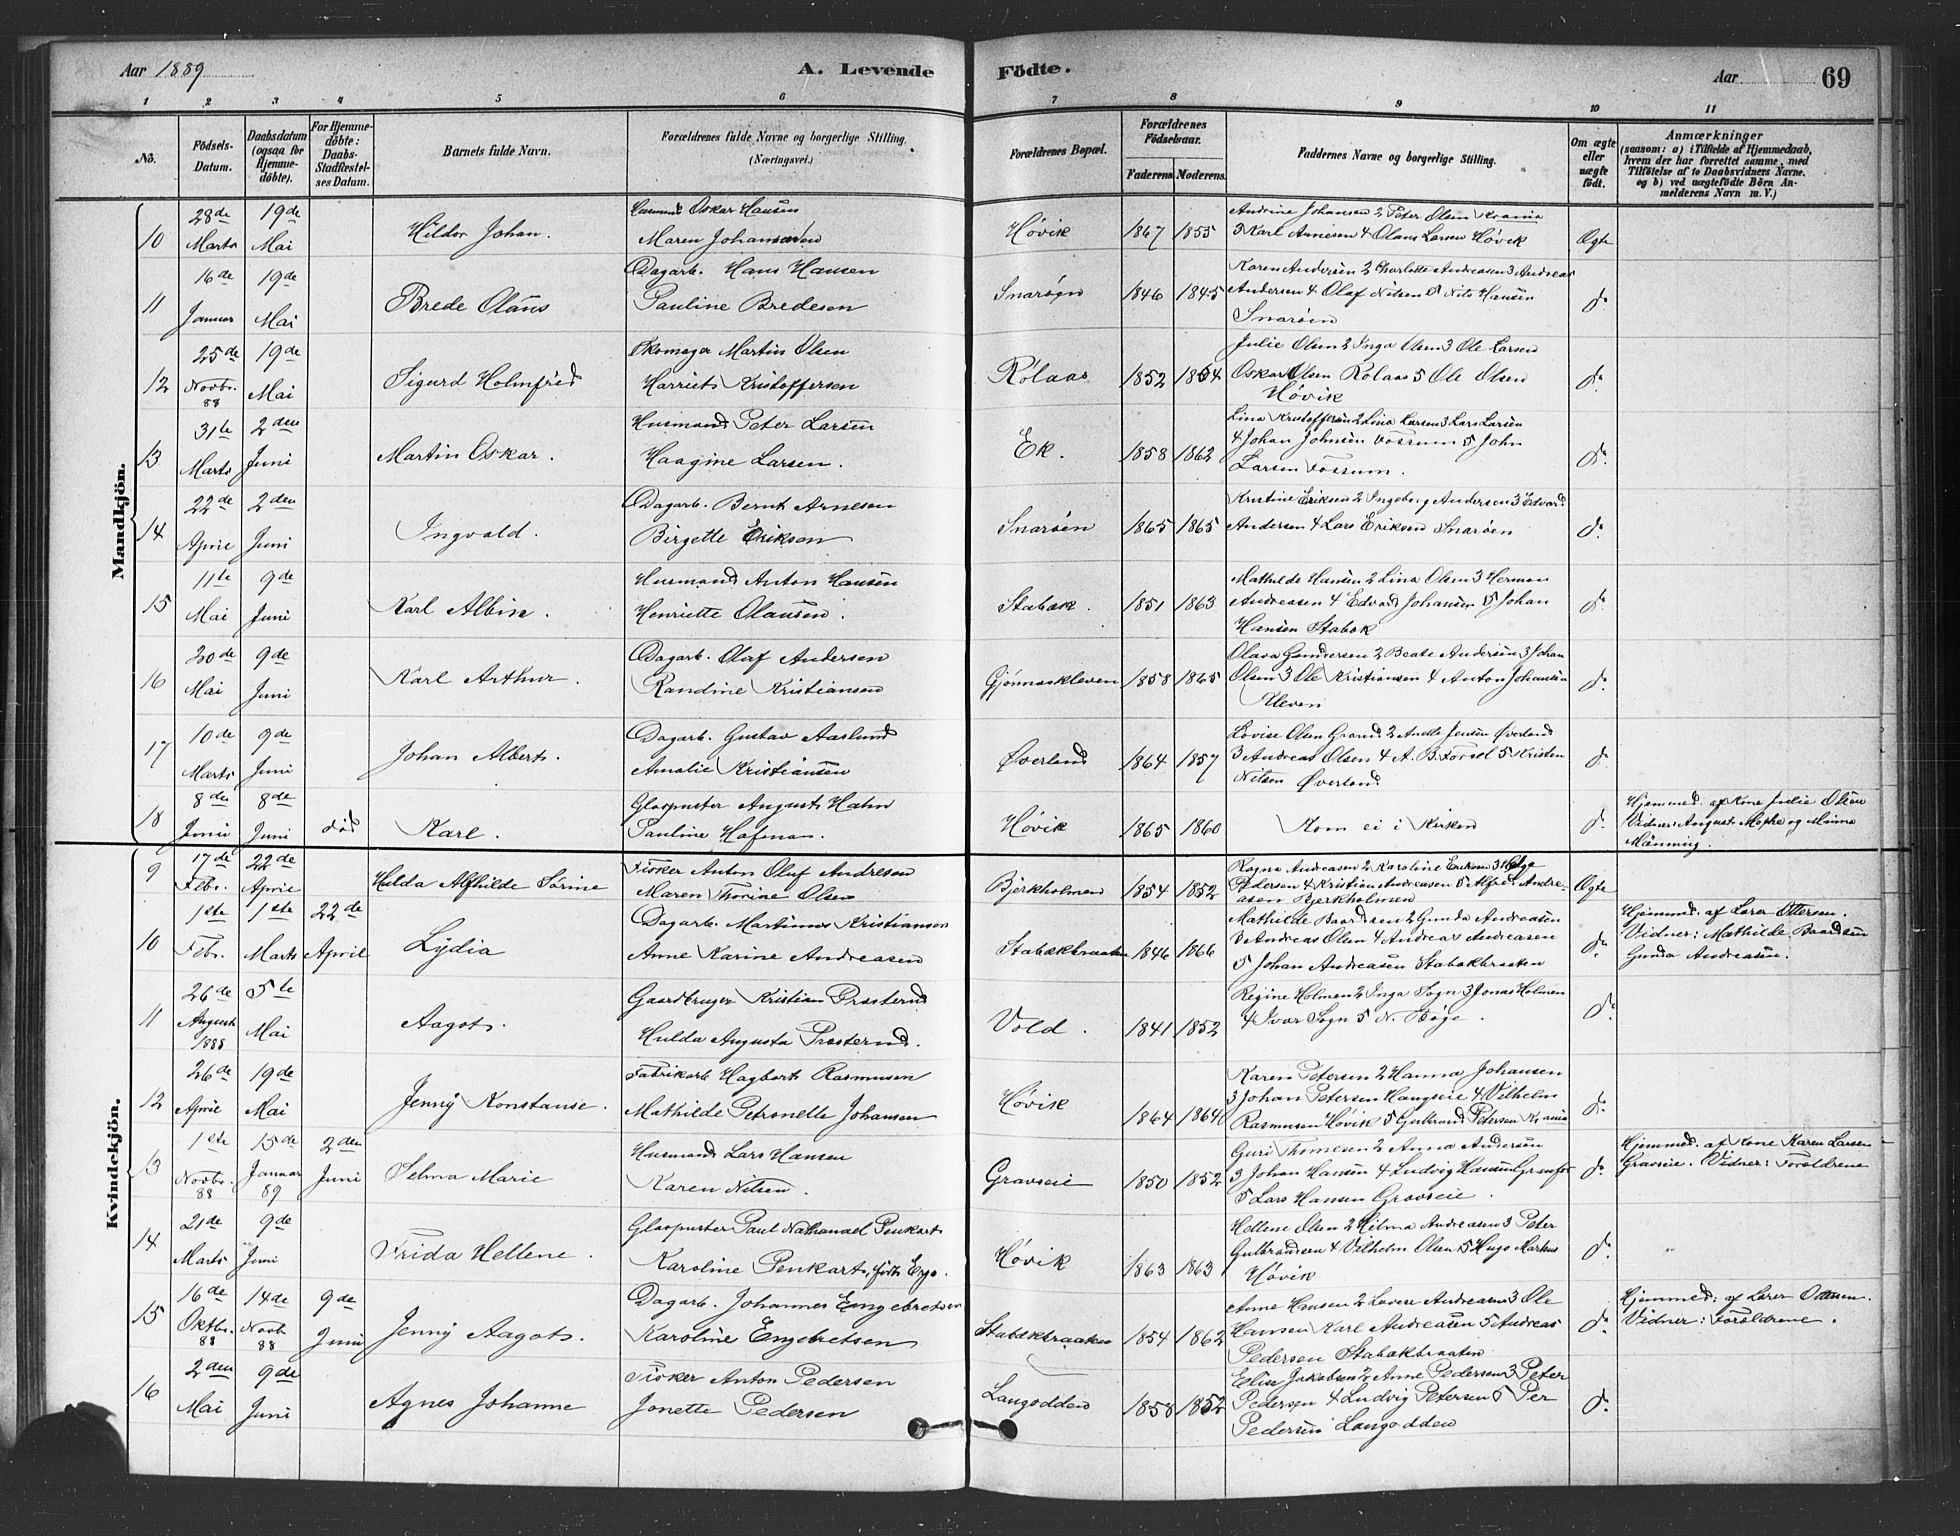 Aar 1889
A. Levende
Födte.
Aar
69
1 2 3 4 5 6 7 8 9 10 11
No.
Födsels-Datum.
Daabsdatum (ogsaa for Hjemme-döbte).
For Hjemme-döbte: Daabs-Stadfestel-ses Datum.
Barnets fulde Navn.
Forældrenes fulde Navne og borgerlige Stilling. (Næringsvei.)
Forældrenes Bopæl.
Forældrenes Födselsaar.
Faderens Moderens
Faddernes Navne og borgerlige Stilling.
Om ægte eller uægte födt.
Anmærkninger
(saasom: a) i Tilfælde af Hjemmedaab, hvem der har forrettet samme, med Tilföielse af to Daabsvidners Navne. og b) ved uægtefödte Börn An-melderens Navn m. V.)
Mandkjön.
10 28de Marts 19de Mai Hildor Johan. Oskar Hansen
Maren Johannesen Høvik 1867 1855 Andrine Johansen 2 Peter Olsen Krania
3 Karl Arnesen 4 Olaus Larsen Høvik Ægte
11 16de Januar 19de Mai Brede Olaus Dagarb. Hans Hansen
Pauline Bredesen Snarøen 1846 1845 Karen Andersen 2 Charlotte Andreasen 3 Andreas
Andersen 4 Olaf Nilsen 5 Nils Hansen
Snarøen do
12 25de Novbr. 88 19de Mai Sigurd Holmfred Skomager Martin Olsen
Harriet Kristoffersen Rolaas 1852 1854 Julie Olsen 2 Inga Olsen 3 Ole Larsen
Oskar Olsen Rolaas 5 Ole Olsen
Høvik do
13 31te Marts 2den Juni Martin Oskar. Husmand Peter Larsen
Haagine Larsen. Ek. 1858 1862 Lina Kristoffersen 2 Lina Larsen 3 Lars Larsen
4 Johan Johnsen Fossum 5 John
Larsen Fossum. do
14 22de April 2den Juni Ingvald. Dagarb. Bernt Arnesen
Birgette Erikson Snarøen 1865 1865 Kristine Eriksen 2 Ingeborg Andersen 3 Edvard
Andersen 4 Lars Eriksen Snarøen do
15 11te Mai 9de Juni Karl Albin. Husmand Anton Hansen
Henriette Olausen. Stabæk. 1851 1863 Mathilde Hansen 2 Lina Olsen 3 Herman
Andreasen 4 Edvard Johansen 5 Johan
Hansen Stabæk do
16 20de Mai 9de Juni Karl Arthur. Dagarb. Olaf Andersen
Randine Kristiansen Gjønnaskleven 1858 1865 Olava Gundersen 2 Beate Andersen 3 Johan
Olsen 3 Ole Kristiansen 4 Anton Johansen
Kleven do
17 10de Marts 9de Juni Johan Albert. Dagarb. Gustav Aaslund
Amalie Kristiansen Øverland 1864 1857 Lovise Olsen Grand 2 Jensen Øverland
3 Andreas Olsen 4 A. B. Forsel 5 Kristen
Nilsen Øverland do
18 8de Juni 8de Juni död Karl. Glaspuster August Hahn
Pauline Høvik 1865 1860 Kom ei i Kirken do Hjemmed. af Kone Julie Olsen
Vidner: August og Minna
Kvindekjön.
9 17de Febr. 22de April Hulda Alfhilde Sørine Fisker Anton Oluf Andresen
Maren Thorine Olsen Bjerkholmen 1854 1852 Ragna Andreasen 2 Karoline Eriksen 3 Helge
Pedersen 4 Kristian Andreasen 5 Alfred Andre-
asen Bjerkholmen Ægte
10 1ste Febr. 1ste Marts 22de April Lydia Dagarb. Martinus Kristiansen
Anne Karine Andreasen Stabækbraaten 1846 1866 Mathilde Baardsen 2 Gunda Andreasen
3 Andreas Olsen 4 Andreas Andreasen
5 Johan Andreasen Stabækbraaten do Hjemmed. af Lærer Ottersen.
Vidner: Mathilde Baardsen
Gunda Andreasen.
11 26de August 1888 5te Mai Aagot. Gaardbruger Kristian Præsterud
Hulda Augusta Præsterud. Vold. 1841 1852 Regine Holmen 2 Inga Sogn 3 Jonas Holmen
4 Ivar Sogn 5 N. Bøge. do
12 26de April 19de Mai Jenny Konstanse. Fabrikarb. Hagbart Rasmusen
Mathilde Petronelle Johansen Høvik 1864 1864 Karen Petersen 2 Hanna Johansen
3 Johan Petersen 4 Vilhelm
Rasmusen Høvik 5 Gulbrand Petersen Krania do
13 1ste Novbr. 88 15de Januar 89 2den Juni Selma Marie Husmand Lars Hansen
Karen Nilsen. Gravseie 1850 1852 Guri Thomesen 2 Anna Andersen
3 Johan Hansen 4 Ludvig Hansen
5 Lars Hansen Gravseie. do Hjemmed. af Kone Karen Larsen
Gravseie. Vidner: Forældrene
14 21de Marts 9de Juni Frida Hellene. Glaspuster Paul Nathanael Penkart
Karoline Penkart, født Høvik 1863 1863 Hellene Olsen 2 Hilma Andreasen 3 Peter
Gulbrandsen 4 Vilhelm Olsen 5 Hugo Markus
Høvik do
15 16de Oktbr. 88 14de Novbr. 88 9de Juni Jenny Aagot. Dagarb. Johannes Engebretsen
Karoline Engebretsen Stabækbraaten 1854 1862 Anne Hansen 2 Lovise Andreasen 3 Ole
Hansen Karl Andreasen 5 Andreas
Pedersen Stabækbraaten do Hjemmed: af Lærer Ottersen.
Vidner: Forældrene.
16 2den Mai 9de Juni Agnes Johanne Fisker Anton Pedersen
Jonette Pedersen Langodden 1858 1852 Elise Jakobsen 2 Anne Pedersen 3 Peter
Pedersen 4 Ludvig Petersen 5 Per
Pedersen Langodden do